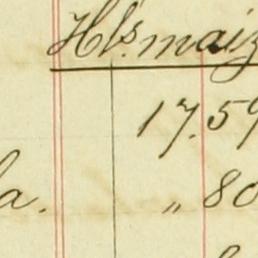 Hls. maiz
17.59
a. " 80